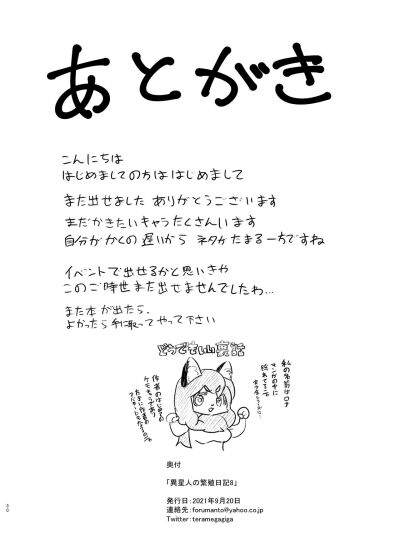 あとがき
こんにちは
はじめましての方は はじめまして
また出せました ありがとうございます
まだかきたいキャラたくさんいます
自分がかくの遅いから ネタがたまる一方ですね
イベントで出せるかと思いきや
このご時世まだ出せませんでしたわ…
また本が出たら、
よかったら手に取ってやって下さい
どうでもいい裏話
奥付
「異星人の繁殖日記8」
発行日：2021年9月20日
連絡先：forumanto@yahoo.co.jp
Twitter：teramegagiga
30